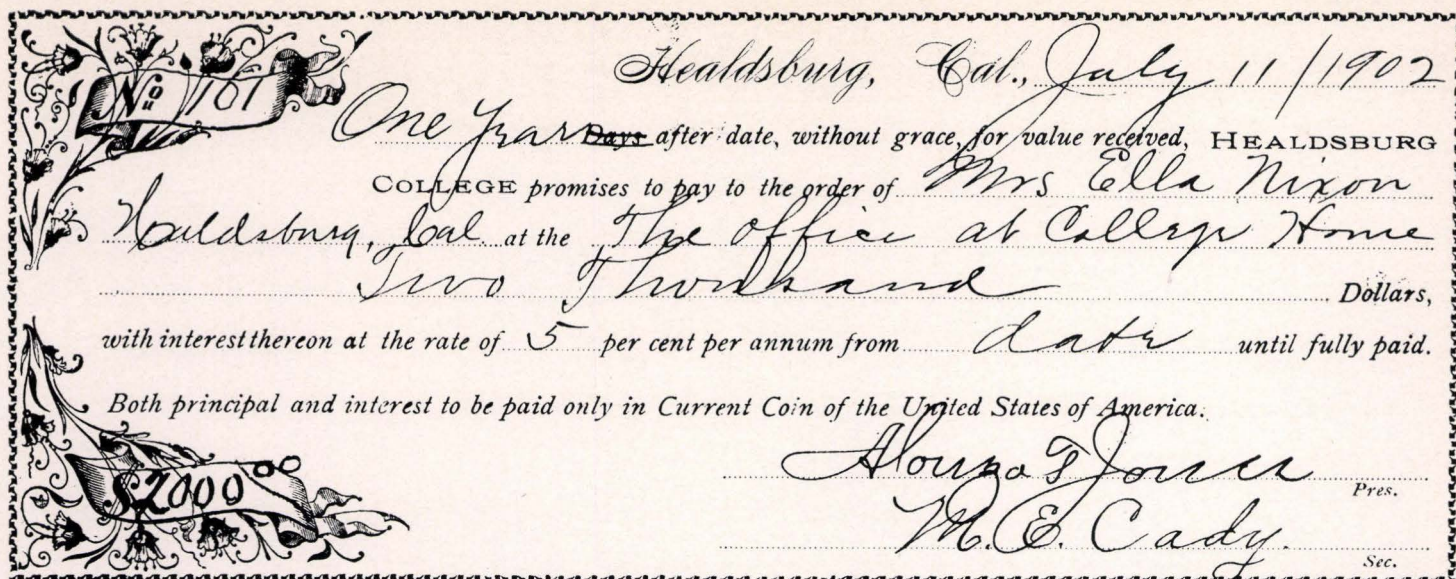 Healdsburg, Cal., July 11/1902
No 161
One Year Days after date, without grace, for value received, HEALDSBURG
COLLEGE promises to pay to the order of Mrs Ella Nixon
Healdsburg, Cal. at the The office at College Home
Two Thousand Dollars,
with interest thereon at the rate of 5 per cent per annum from date until fully paid.
Both principal and interest to be paid only in Current Coin of the United States of America.
$2000 00
Alonzo T Jones
Pres.
M. E. Cady.
Sec.